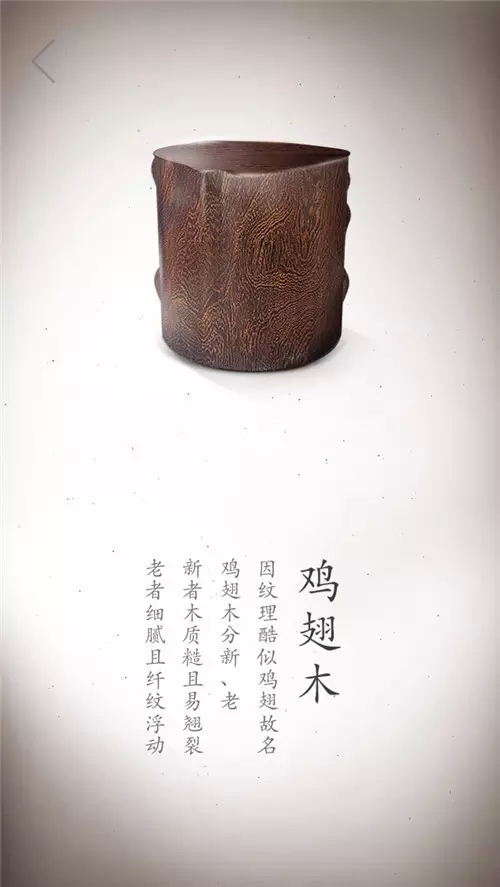 鸡翅木
因纹理酷似鸡翅故名
鸡翅木分新、老
新者木质糙且易翘裂
老者细腻且纤纹浮动